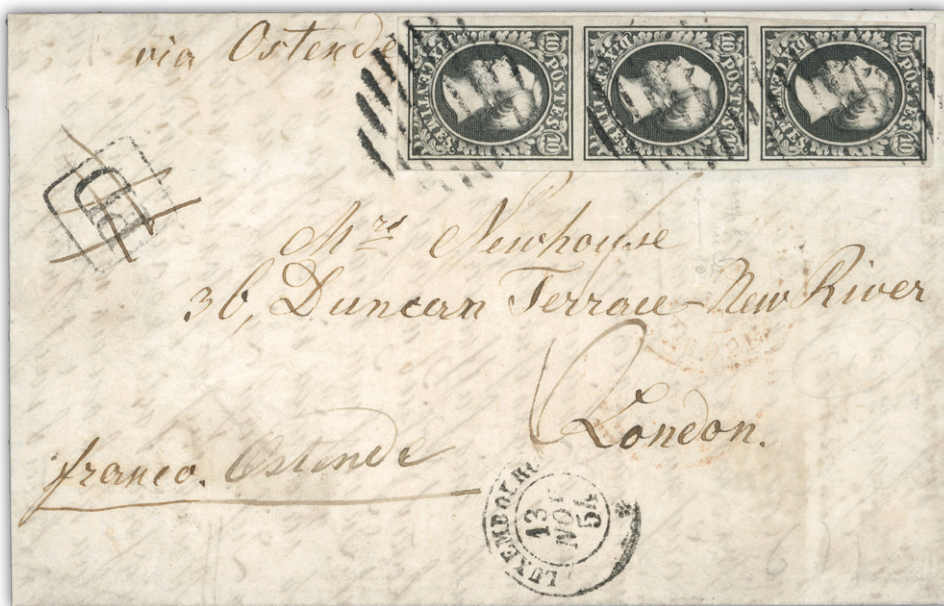 via Ostende
10 POSTES 10
DIX CENTIMES
10 POSTES 10
DIX CENTIMES
10 POSTES 10
DIX CENTIMES
PD
Mrs Newhouse
36, Duncan Terrace - New River
London.
franco. Ostende
LUXEMBOURG
13
NOV
54